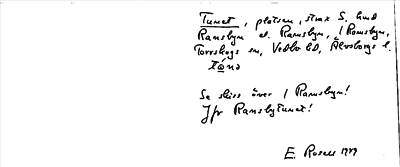 Tunet, platsen, strax S. hmd
Ransbyn el. Ramsbyn, i Romsbyn,
Torrskogs sn, Vedbo hd, Älvsborgs l.
Se skiss över i Ramsbyn!
Jfr Ransbytunet!
E. Rosell 1929